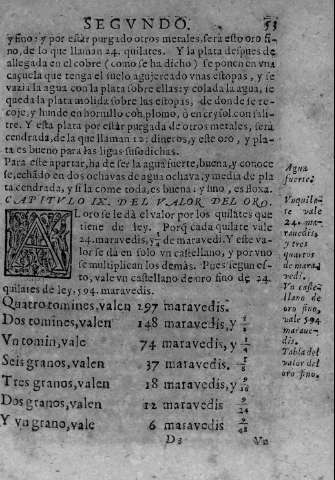 SEGVNDO. 53
y fino: y por estar purgado otros metales, será esto oro fi-
no, de lo que llaman 24. quilates. Y la plata despues de
allegada en el cobre (como se ha dicho) se ponen en vna
caçuela que tenga el suelo agujereado vnas estopas, y se
vazia la agua con la plata sobre ellas: y colada la agua, se
queda la plata molida sobre las estopas, de donde se re-
coje, y hunde en hornillo con plomo, ò en crysol con sali-
tre. Y esta plata por estàr purgada de otros metales, serà
cendrada, de la que llaman 12; dineros, y este oro, y pla-
ta es bueno para las ligas susodichas.
Para este apartar, ha de ser la agua fuerte, buena, y conoce
se, echãdo en dos ochavas de agua ochava, y media de pla
ta cendrada, y si la come toda, es buena: y sino, es floxa.
CAPITVLO IX. DEL VALOR DEL ORO.
AL oro se le dà el valor por los quilates que
tiene de ley. Porq̃ cada quilate vale
24. maravedis, y 3/4 de maravedi. Y este va-
lor se dà en solo vn castellano, y por vno
se multiplican los demàs. Pues segun es-
to, vale vn castellano de oro fino de 24.
quilates de ley, 594. maravedis.
Quatro tomines, valen 297 maravedis.
Dos tomines, valen 148 maravedis, y 1/2
Vn tomin, vale 74 maravedis, y 1/4
Seis granos, valen 37 maravedis. 1/8
Tres granos, valen 18 maravedis, y 9/16
Dos granos, valen 12 maravedis 9/24
Y vn grano, vale 6 maravedis 9/48
D3 Vn
Agua
fuerte.
Vn quila-
te vale
24. ma-
ravedis,
y tres
quartos
de mara
vedi.
Vn caste-
llano de
oro fino,
vale 594
marave-
dis.
Tabla del
valor del
oro fino.